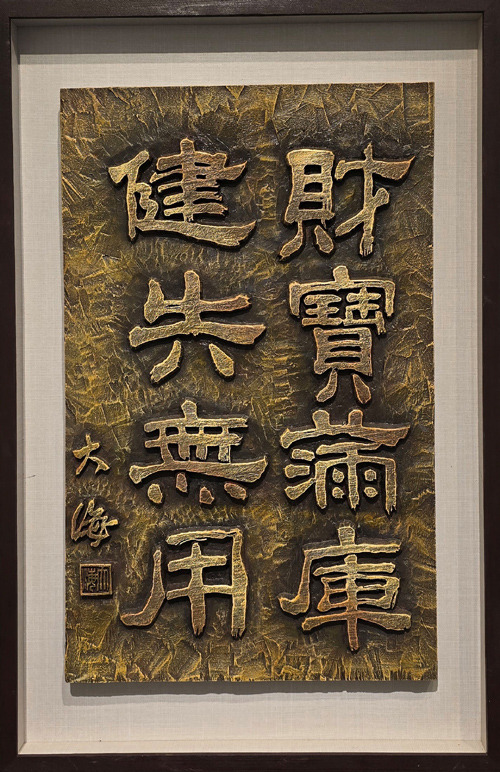 財寶滿庫
健失無用
大海